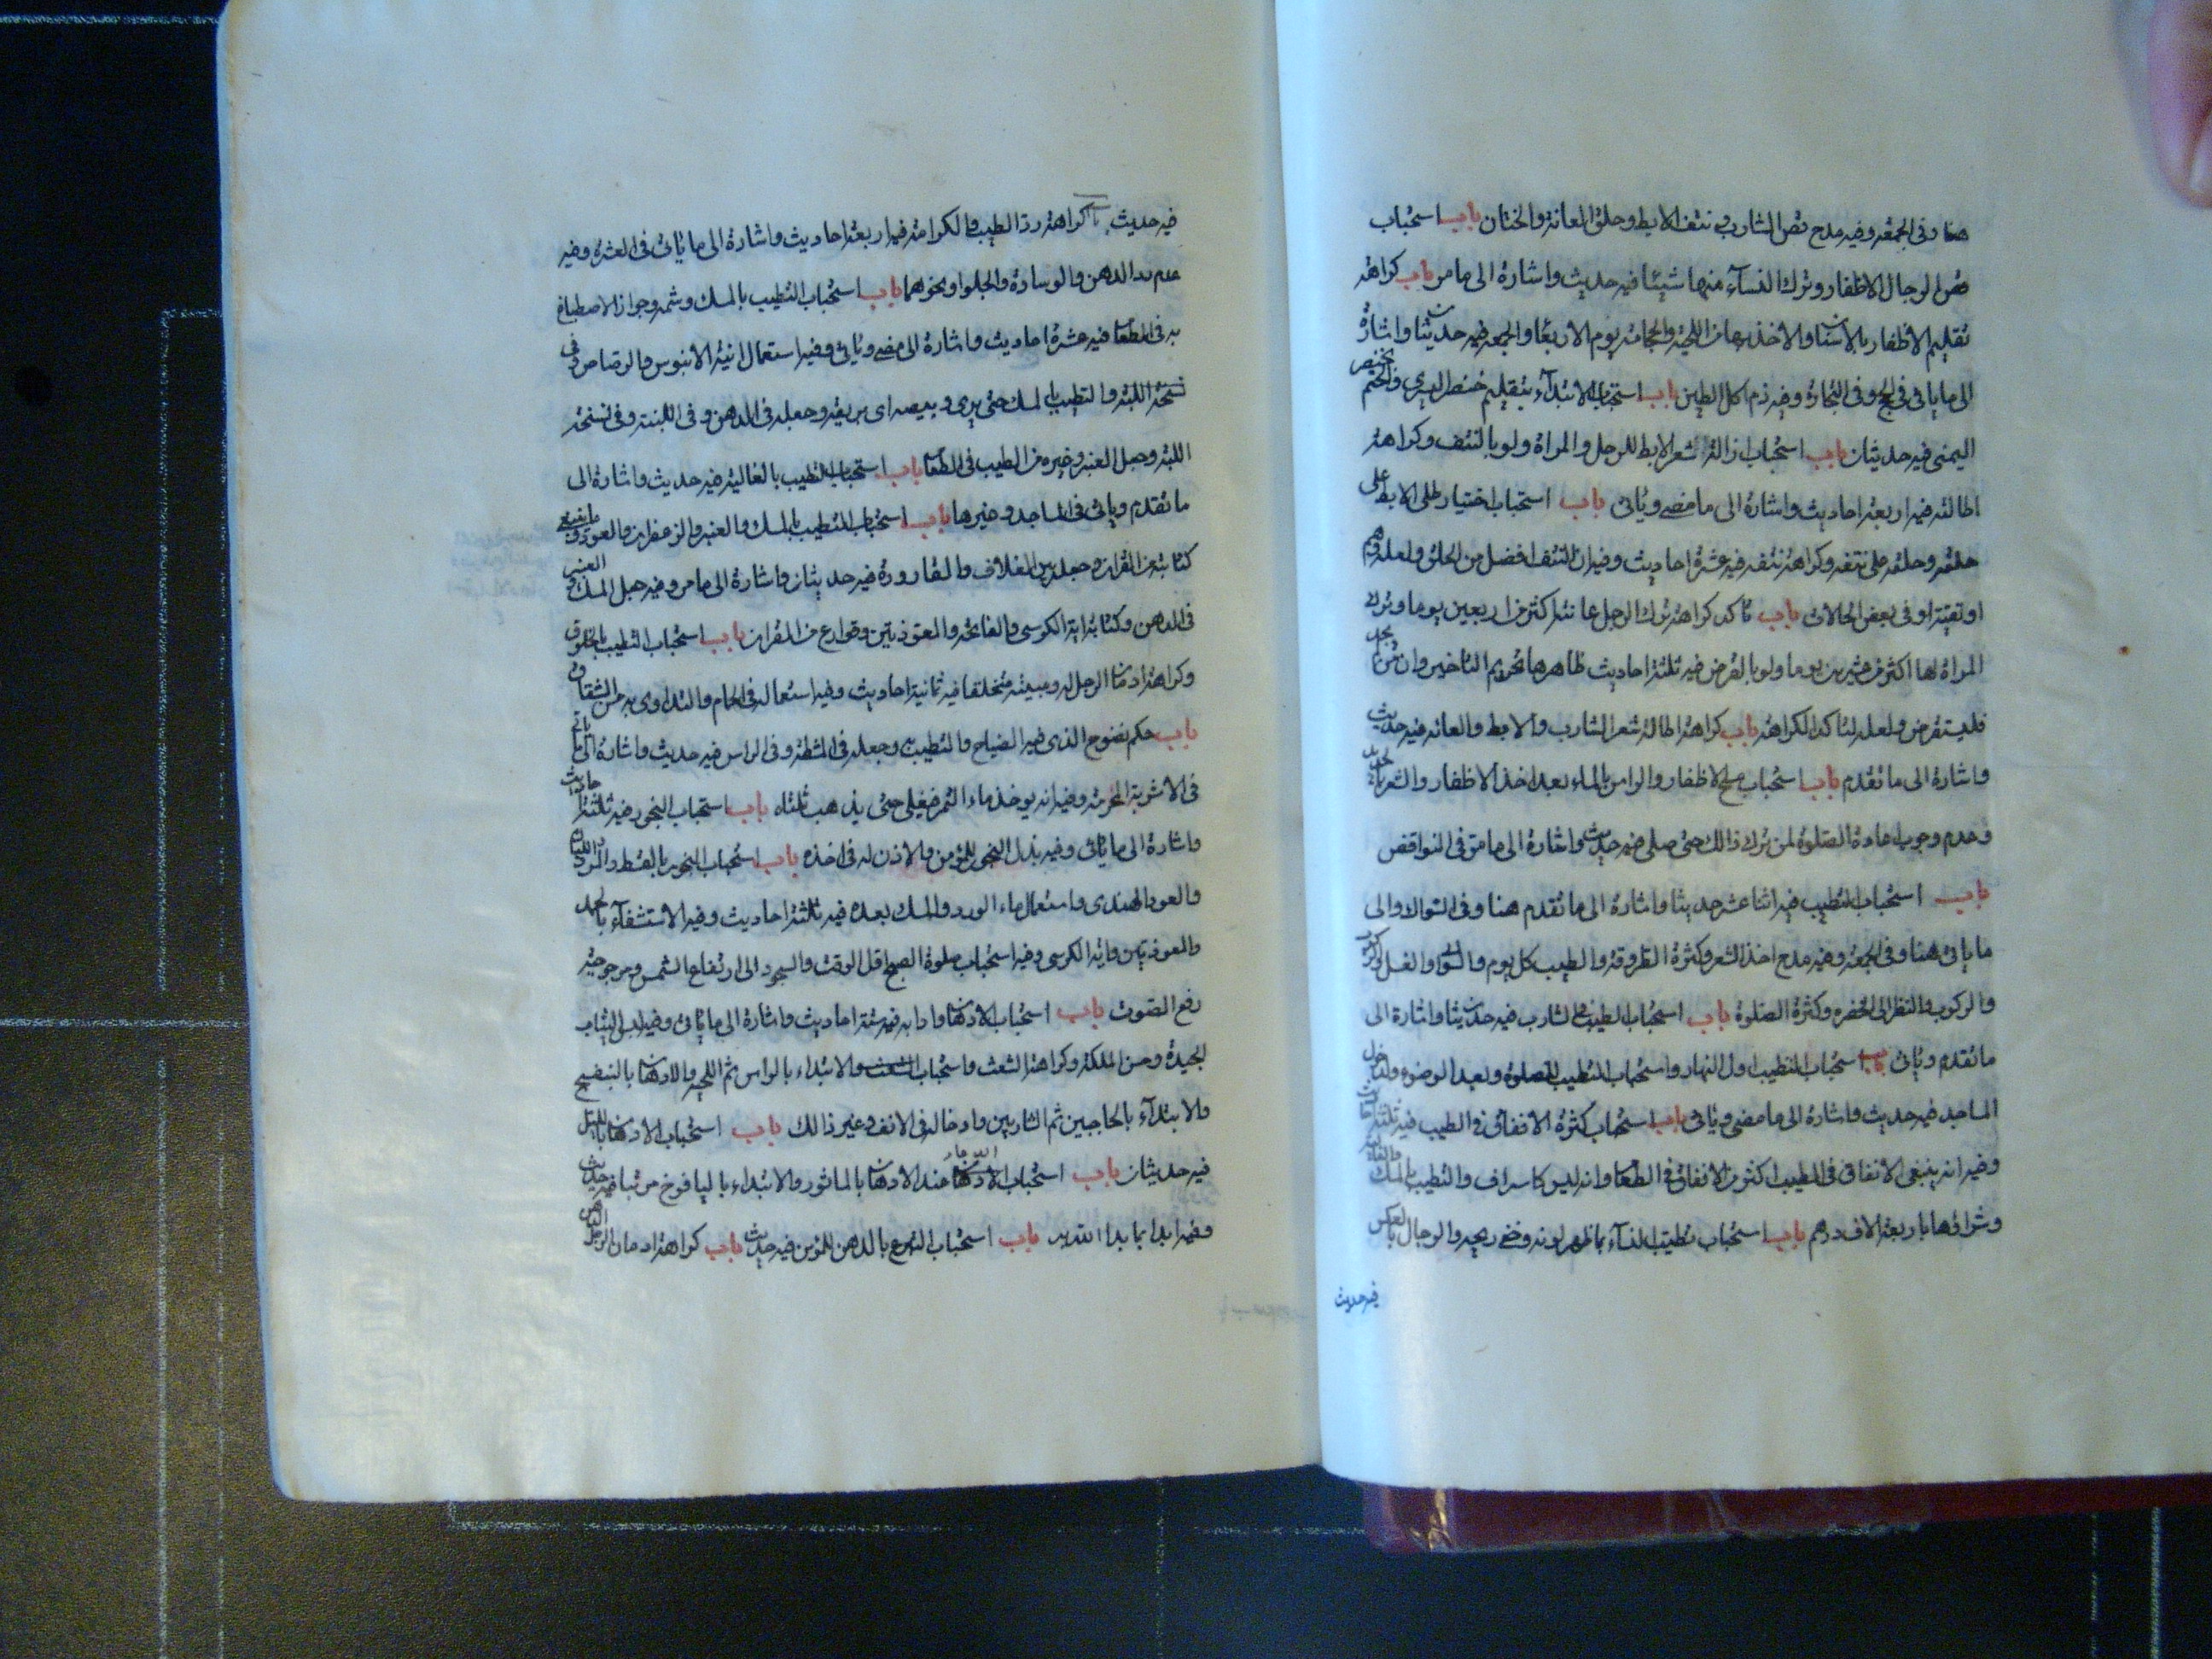 هنا وفى الجمعة وفيه مدح قص الشارب ونتف الابط وحلق العانة والختان باب استحباب
قص الرجال الاظفار وترك النسآء منها شيئا فيه حديث واشارة الى ما مر باب كراهة
تقليم الاظفار بالاسنان والاخذ بها من اللحية والحجامة يوم الاربعا والجمعة فيه حديثان واشارة
الى ما ياتى فى الحج وفى التجارة وفيه ذم اكل الطين باب استحباب الابتدآء بتقليم خنصر اليسرى والختم بخنصر
اليمنى فيه حديثان باب استحباب ازالة شعر الابط للرجل والمراة ولو بالنتف وكراهة
اطالته فيه اربعة احاديث واشارة الى ما مضى وياتى باب استحباب اختيار طلى الابط على
حلقه وحلقه على نتفه وكراهة نتفه فيه عشرة احاديث وفيه ان النتف افضل من الحلق ولعله وهم
او تقية او فى بعض الحالات باب تاكد كراهة ترك الرجل عانته اكثر من اربعين يوما وترك
المراة لها اكثر من عشرين يوما ولو بالقرض فيه ثلثة احاديث ظاهرها تحريم التاخير وان من لم يجد
فليستقرض ولعله لتاكد الكراهة باب كراهة اطالة شعر الشارب والابط والعانة فيه حديث
واشارة الى ما تقدم باب استحباب مسح الاظفار والراس بالماء بعد اخذ الاظفار والشعر بالحديد
وعدم وجوب اعادة الصلوة لمن ترك ذالك حتى صلى فيه حديث واشارة الى ما مر فى النواقض
باب استحباب التطيب فيه اثنا عشر حديثا واشارة الى ما تقدم هنا وفى السواك والى
ما ياتى هنا وفى الجمعة وفيه مدح اخذ الشعر وكثرة الطروقة والطيب كل يوم والسواك والغسل
والركوب والنظر الى الخضرة وكثرة الصلوة باب استحباب الطيب فى الشارب فيه حديثان واشارة الى
ما تقدم وياتى باب استحباب التطيب اول النهار واستحباب التطيب للصلوة وبعد الوضوء ولداخل
المساجد فيه حديث واشارة الى ما مضى وياتى باب استحباب كثرة الانفاق فى الطيب فيه ثلثة احاديث
وفيه انه ينبغى الانفاق فى الطيب اكثر من الانفاق فى الطعام وانه ليس كاسراف والتطيب بالمسك والغالية
وشرائها باربعة الاف درهم باب استحباب تطيب النسآء بما ظهر لونه وخفى ريحه والرجال بالعكس
فيه حديث
فيه حديث باب كراهة رد الطيب والكرامة فيه اربعة احاديث واشارة الى ما ياتى فى العشرة وفيه
عدم رد الدهن والوسادة والحلوا ونحوهما باب استحباب التطيب بالمسك وشمه وجواز الاصطباغ
به فى الطعام فيه عشرة احاديث واشارة الى مضى وياتى وفيه استعمال انية الابنوس والرصاص وفى
نسخة اللبنة والتطيب بالمسك حتى يرى وبيصه اى بريقه وجعله فى الدهن وفى اللبنة وفى نسخة
اللبنة وجعل العنبر وغيره من الطيب فى الطعام باب استحباب التطيب بالغالية فيه حديث واشارة الى
ما تقدم وياتى فى المساجد وغيرها باب استحباب التطيب بالمسك والعنبر والزعفران والعود وما ينبغى
كتابته من القران وجعله بين الغلاف والقارورة فيه حديثان واشارة الى ما مر وفيه جعل المسك والعنبر
فى الدهن وكتابة اية الكرسى والفاتحة والمعوذتين وقوارع من القران باب استحباب التطيب بالخلوق
وكراهة ادمان الرجل له ومبيته متخلقا فيه ثمانية احاديث وفيه استعماله فى الحمام والتداوى به من الشقاق
باب حكم نضوح الذى فيه الضياح والتطيب به وجعله فى المشطة وفى الراس فيه حديث واشارة الى ما ياتى
فى الاشربة المحرمة وفيه انه يوخذ ماء التمر فيغلى حتى يذهب ثلثاه باب استحباب البخور فيه ثلثة احاديث
واشارة الى ما ياتى وفيه بذل البخور للمؤمن والاذن له فى اخذه باب استحباب البخور بالقسط والمر واللبان
والعود الهندى واستعمال ماء الورد والمسك بعده فيه ثلثة احاديث وفيه الاستشفآء بالحمد
والمعوذتين واية الكرسى وفيه استحباب صلوة الصبح اول الوقت والسجود الى ارتفاع الشمس ومرجوحية
رفع الصوت باب استحباب الادهان وادابه فيه ستة احاديث واشارة الى ما ياتى وفيه لبس الثياب
الجيدة وحسن الملكة وكراهة الشعث واستحباب الشعث والابتداء بالراس ثم اللحية والادهان بالبنفسج
والابتدآء بالحاجبين ثم الشاربين وادخاله فى الانف وغير ذالك باب استحباب الادهان بالليل
فيه حديثان باب استحباب الدعاء عند الادهان بالماثور والابتداء باليافوخ مرتبا فيه حديث
وفيه ابدا بما بدا الله به باب استحباب التبرع بالدهن للمؤمن فيه حديث باب كراهة ادمان الرجل الدهن